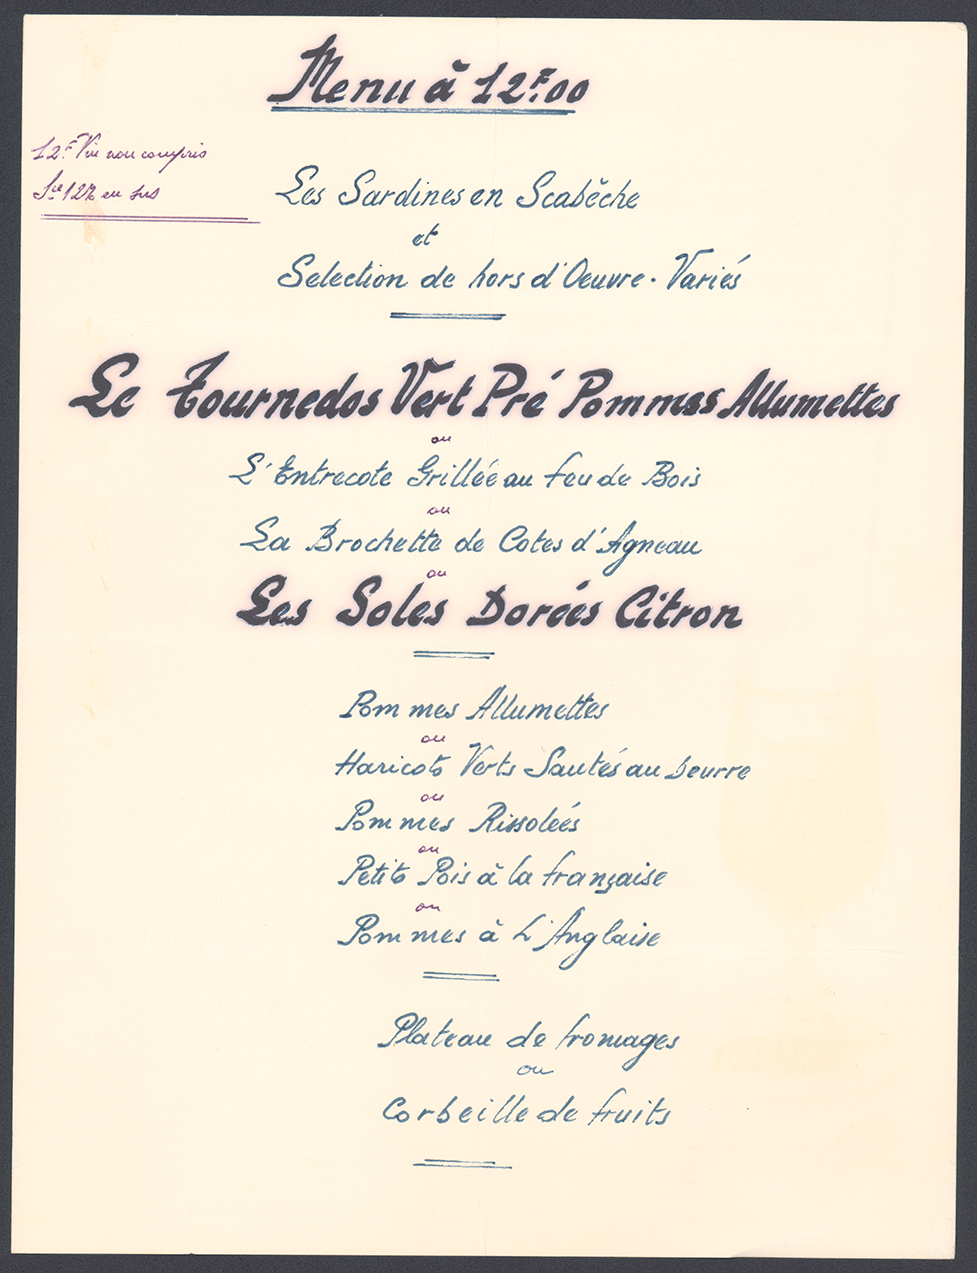 Menu à 12F.00
12F Vin non compris
Sce 12% en sus
Les Sardines en Scabêche
et
Selection de hors d'Oeuvre. Variés
Le Tournedos Vert Pré Pommes Allumettes
ou
L'Entrecote Grillée au feu de Bois
ou
La Brochette de Cotes d'Agneau
ou
Les Soles Dorées Citron
Pommes Allumettes
ou
Haricots Verts Sautés au beurre
ou
Pommes Rissolées
ou
Petits Pois à la française
ou
Pommes à L'Anglaise
Plateau de fromages
ou
Corbeille de fruits